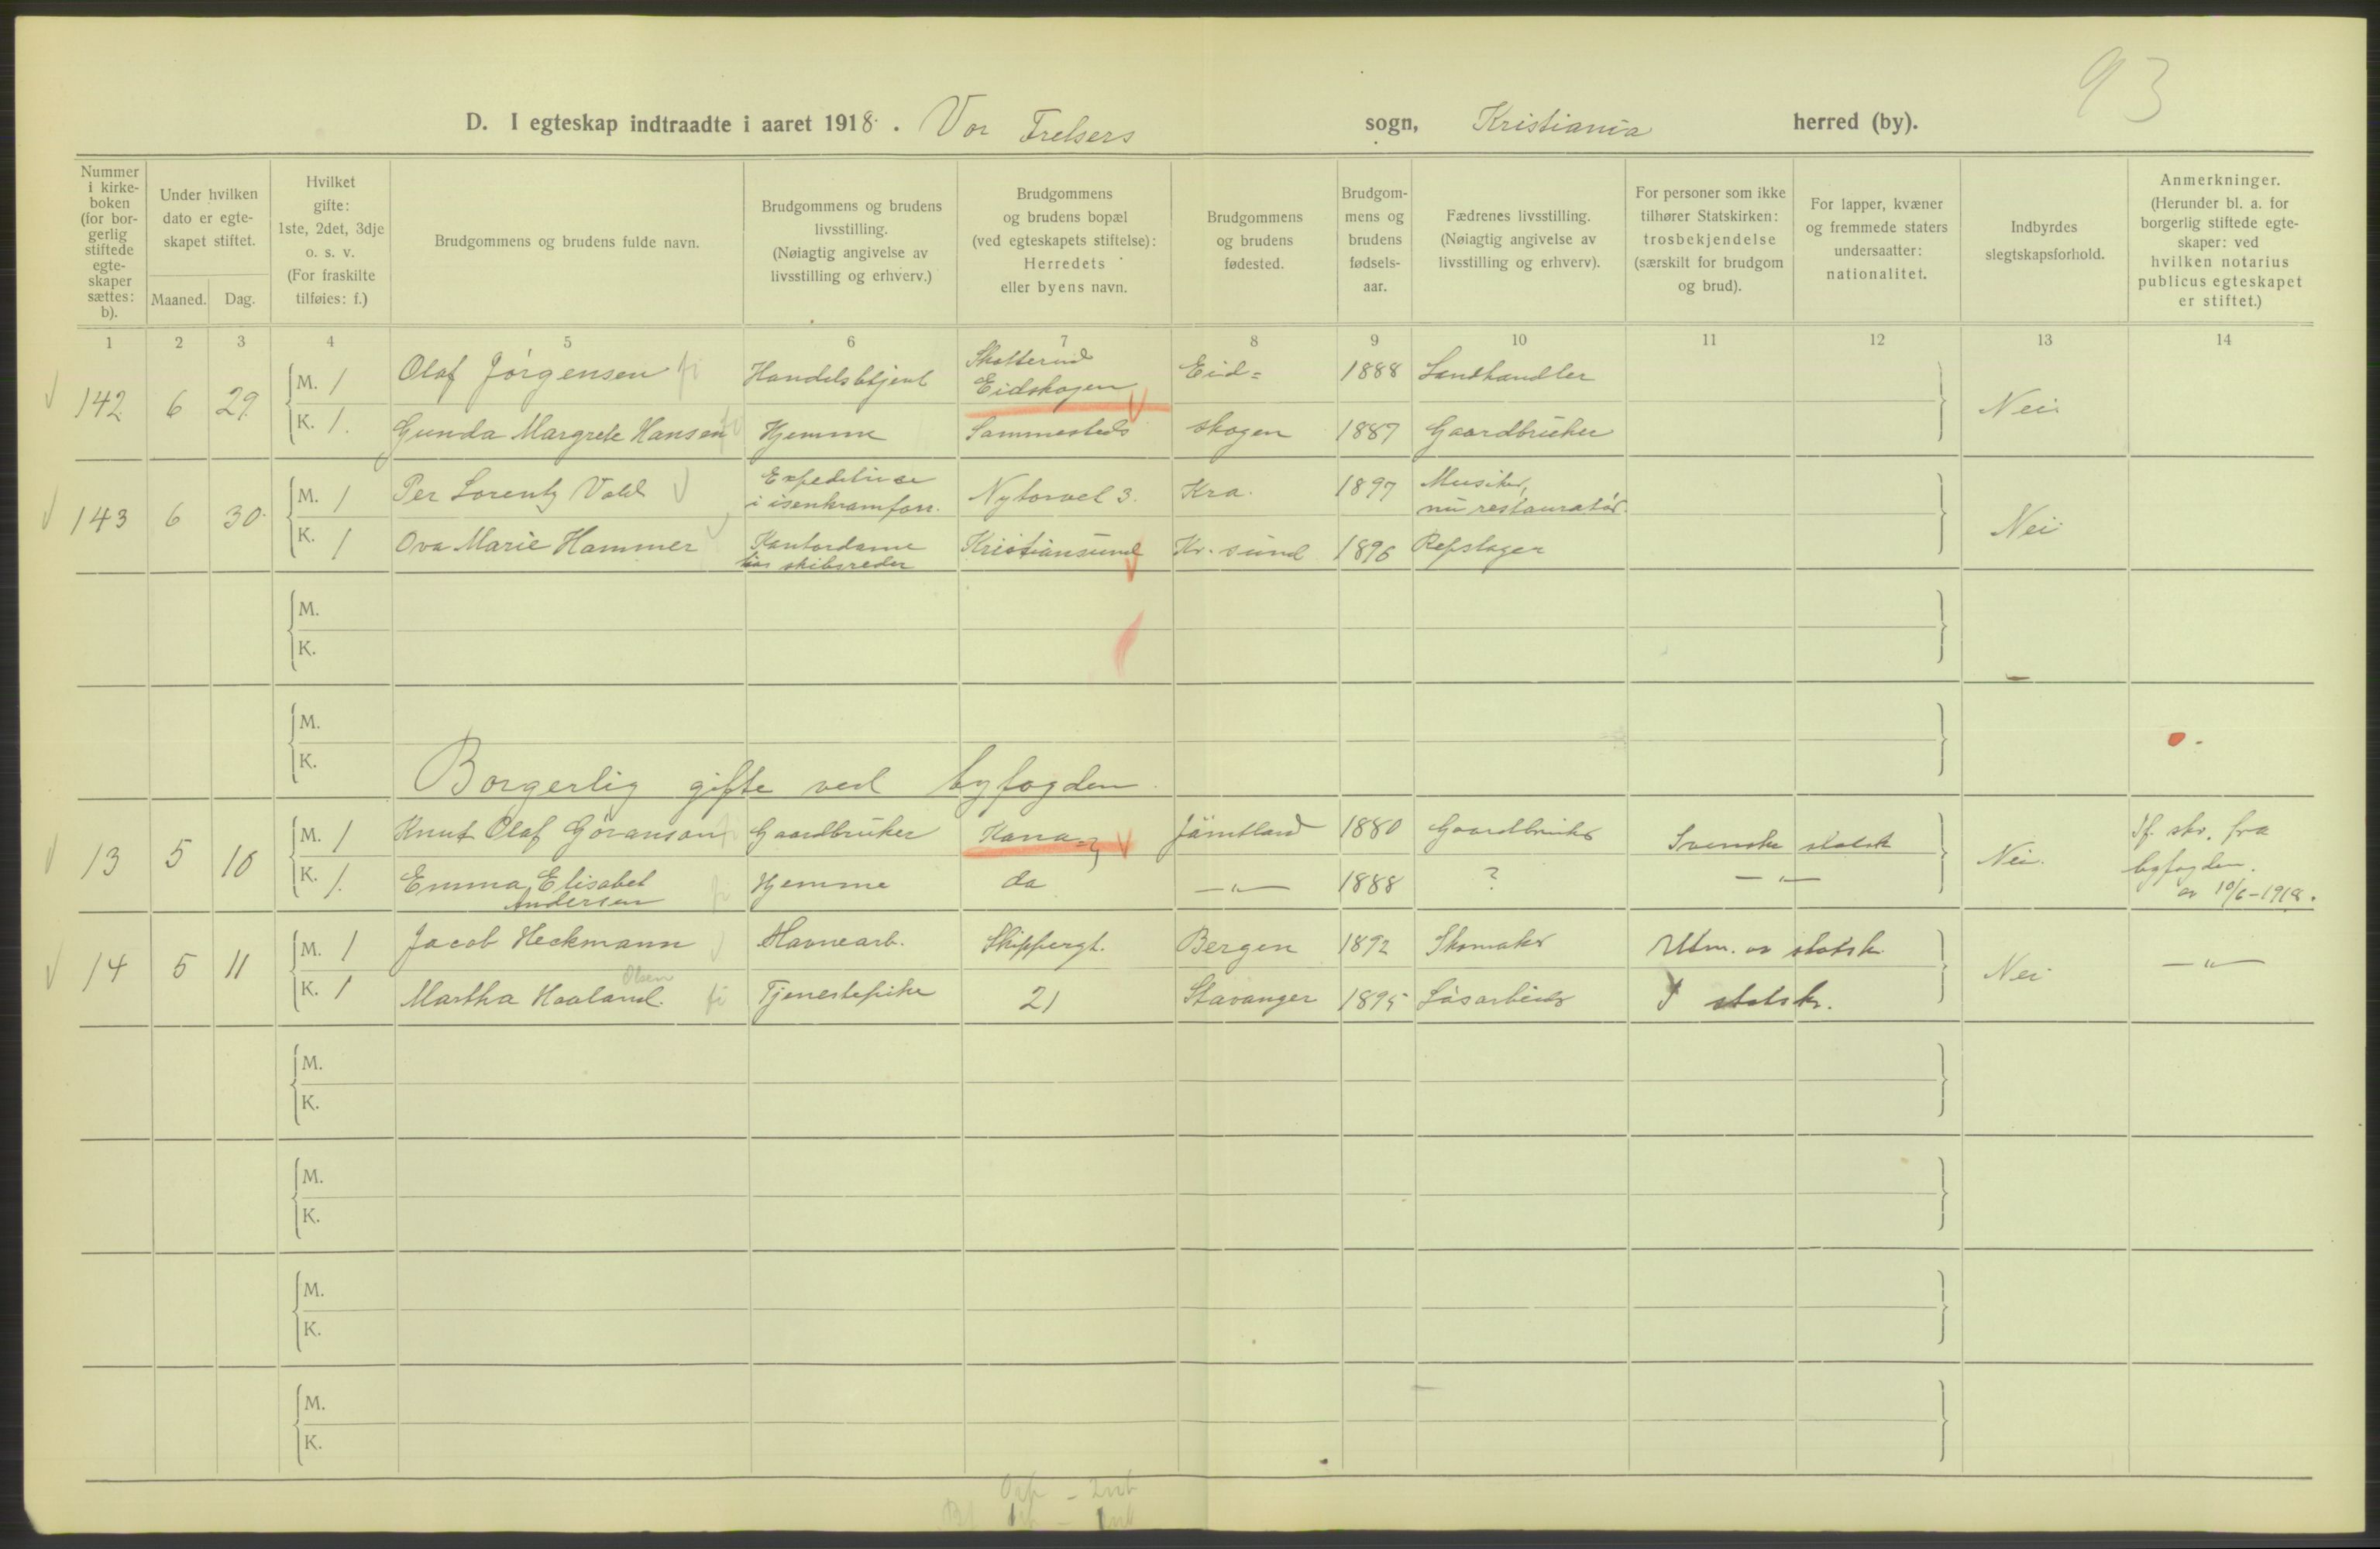 93
D. I egteskap indtraadte i aaret 1918. Vor Frelsers sogn, Kristiania herred (by).
Nummer i kirke- boken (for bor- gerlig stiftede egte- skaper sættes: b).
Under hvilken dato er egte- skapet stiftet.
Maaned. Dag.
Hvilket gifte: 1ste, 2det, 3dje o. s. v. (For fraskilte tilføies: f.)
Brudgommens og brudens fulde navn.
Brudgommens og brudens livsstilling. (Nøiagtig angivelse av livsstilling og erhverv.)
Brudgommens og brudens bopæl (ved egteskapets stiftelse): Herredets eller byens navn.
Brudgommens og brudens fødested.
Brudgom- mens og brudens fødsels- aar.
Fædrenes livsstilling. (Nøiagtig angivelse av livsstilling og erhverv).
For personer som ikke tilhører Statskirken: trosbekjendelse (særskilt for brudgom og brud).
For lapper, kvæner og fremmede staters undersaatter: nationalitet.
Indbyrdes slegtskapsforhold.
Anmerkninger. (Herunder bl. a. for borgerlig stiftede egte- skaper: ved hvilken notarius publicus egteskapet er stiftet.)
1 2 3 4 5 6 7 8 9 10 11 12 13 14
142 6 29 M. 1 Olaf Jørgensen Handelsbetjent Skotterud Eidskogen Eid= 1888 Landhandler Nei.
K. 1. Gunda Margrete Hansen Hjemme Sammesteds skogen 1887 Gaardbruker
143 6 30. M. 1 Per Lorentz Vold i isenkramforr. Nytorvet 3. Kra. 1897 Musiker, nu restauratør. Nei
K. 1 Ova Marie Hammer Kontordame hos skibsreder Kristiansund Kr. sund 1896 Repslager
M.
K.
M.
K.
Borgerlig gifte ved byfogden.
13 5 10 M. 1 Knut Olaf Göranson Gaardbruker Kana= Jämtland 1880 Gaardbruker Svenske statsk Nei. Jf. skr. fra
K. 1. Emma Elisabet Andersen Hjemme da —"— 1888 ? —"— byfogden. av 10/6-1918.
14 5 11 M. 1 Jacob Heckmann Havnearb. Skippergt. Bergen 1892 Skomaker Utm. av statsk. Nei —"—
K. 1 Martha Haaland. Olsen Tjenestepike 21 Stavanger 1895 Løsarbeider I statsk.
M.
K.
M.
K.
M.
K.
M.
K.